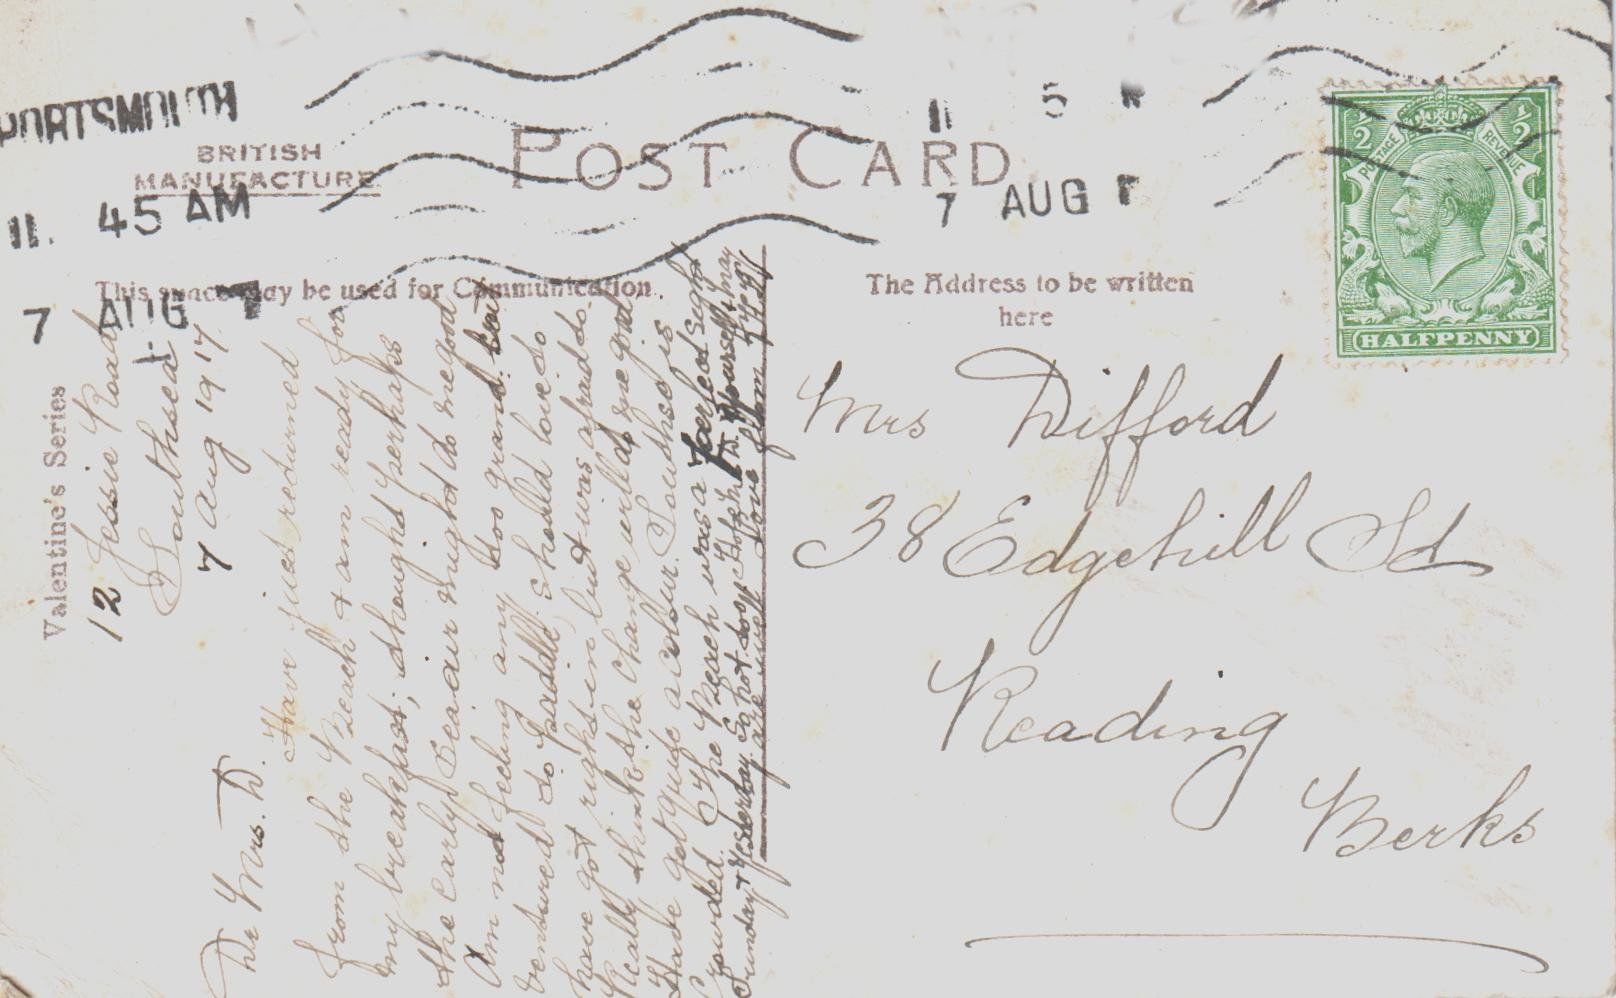 PORTSMOUTH
11. 45 AM
7 AUG 17
11 5
7 AUG
BRITISH
MANUFACTURE
POST CARD
This space may be used for Communication.
The Address to be written
here
½ ½
POSTAGE REVENUE
HALFPENNY
Valentine's Series
12 Jessie Road
Southsea
7 Aug 1917
Dr Mrs. D.
Have just returned
from the Beach & am ready for
my breakfast; thought perhaps
the early Sea air might do me good
Am not feeling any too grand.
ventured to Paddle, should love to
have got right in but was afraid to
Really think the change will do me good
Have got quite a colour. Southsea is
Crowded. The Beach was a perfect sight
Sunday & Yesterday. So hot too. Hope Mr D. Yourself & May
are well Love from
Mrs Difford
38 Edgehill St
Reading
Berks